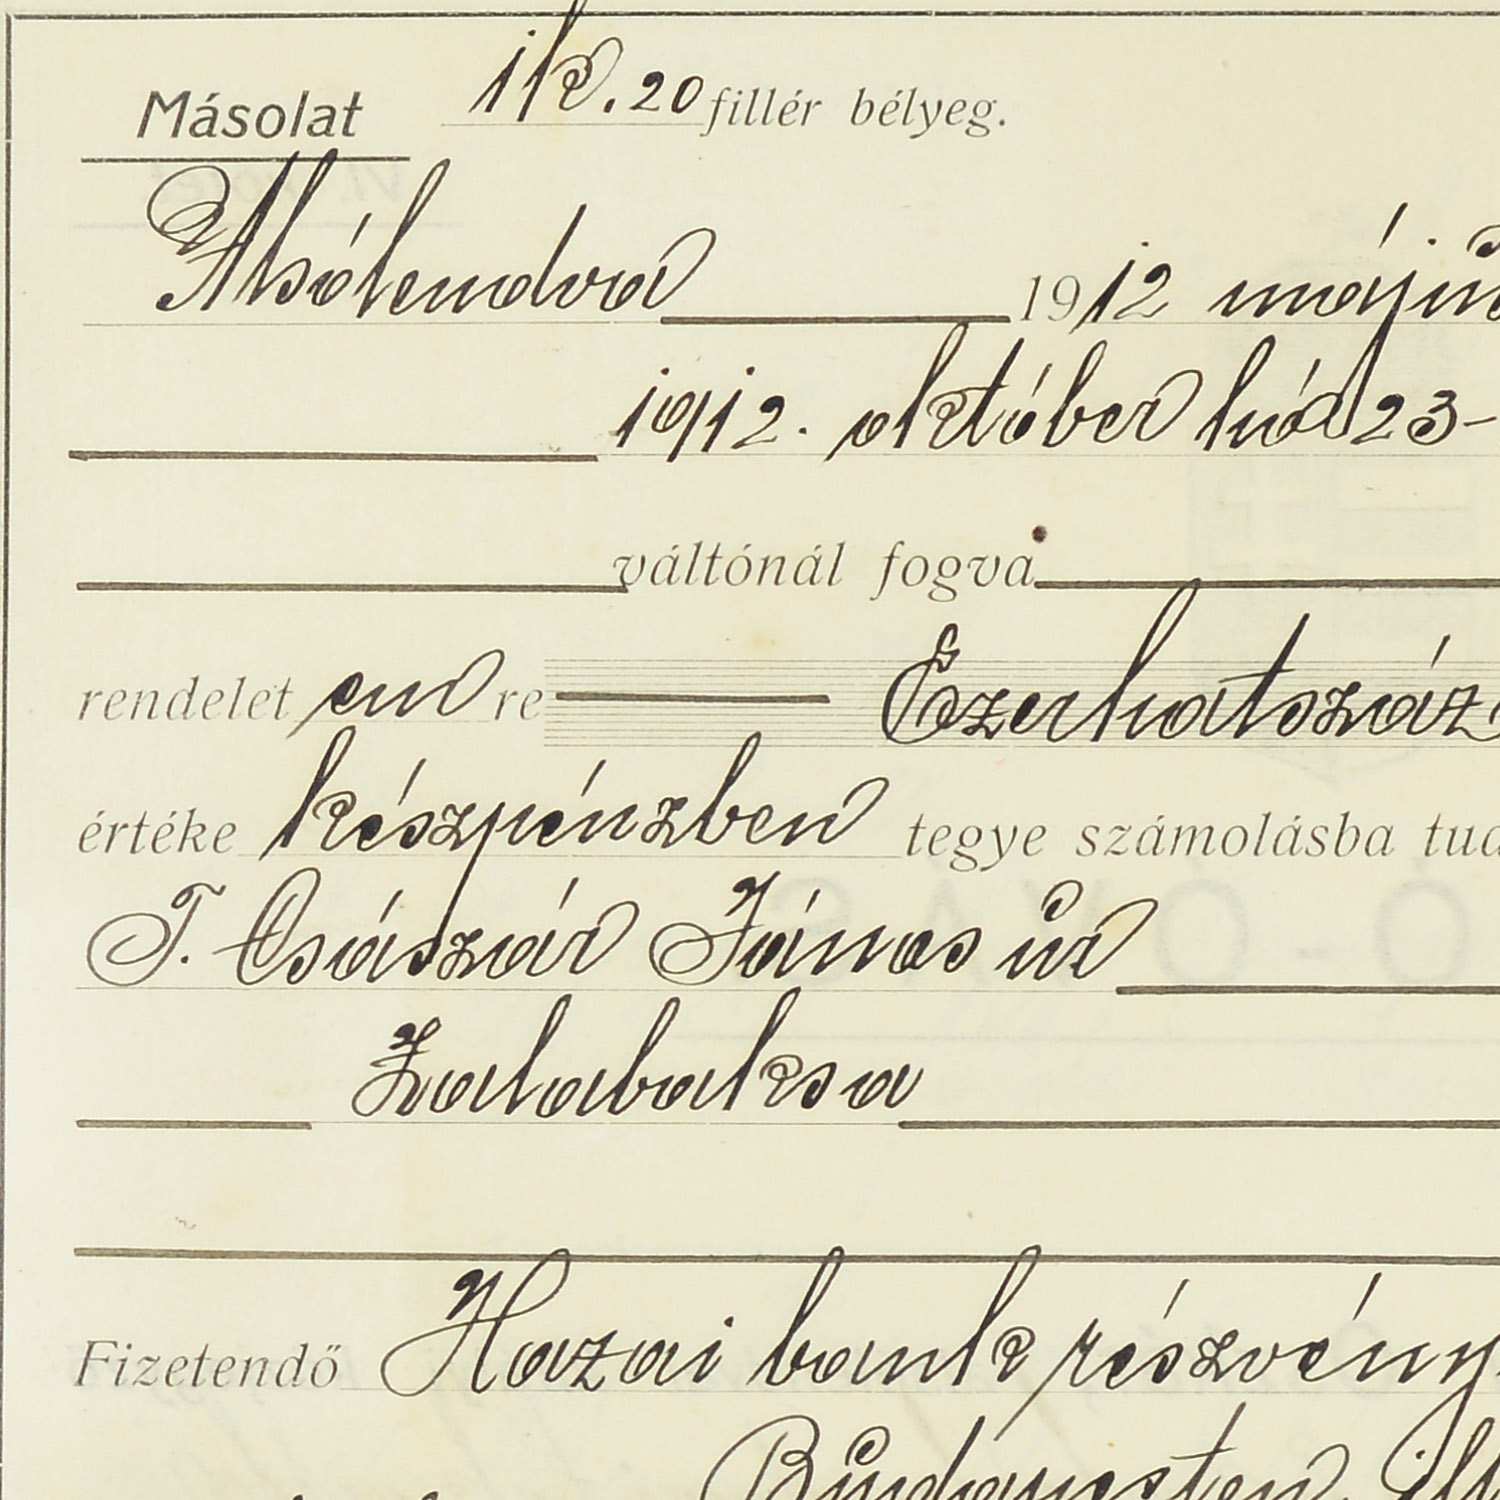 Másolat 1 k. 20 fillér bélyeg.
Alsólendva 1912 május
1912. október hó 23-
váltónál fogva
rendelet en re Ezerhatszáz
értéke készpénzben tegye számolásba tud
T. Császár János úr
Zalabaksa
Fizetendő Hazai bank részvény
Budapesten